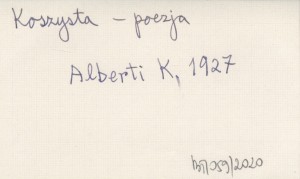 Koszysta - poezja
Alberti K, 1927
BJ/059/2020